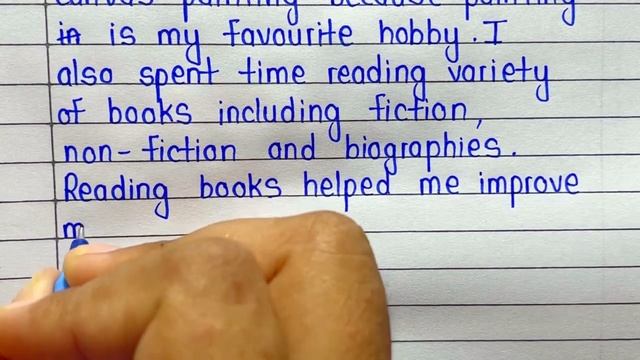 canvas painting because painting
in is my favourite hobby. I
also spent time reading variety
of books including fiction,
non-fiction and biographies.
Reading books helped me improve
m